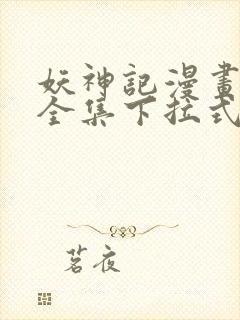 妖神記漫畫
全集下拉式
茗夜